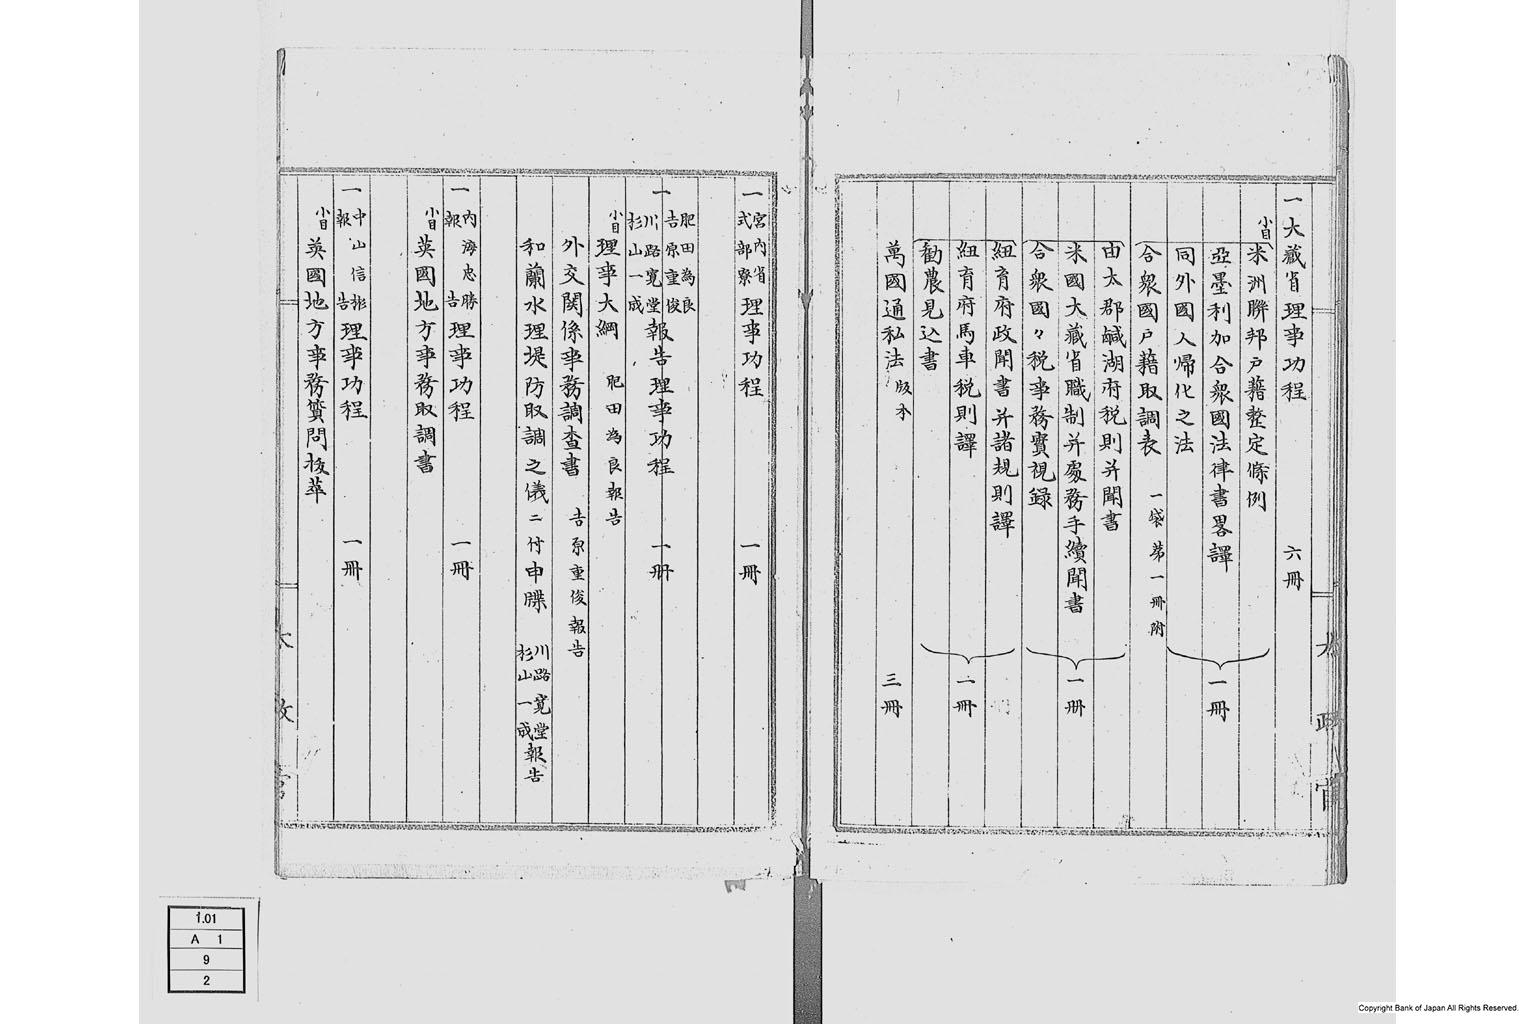 一大藏省理事功程 六冊
小目 米洲聯邦戸籍整定條例
亞墨利加合衆國法律書畧譯
同外國人帰化之法
一冊
合衆國戸籍取調表 一袋 第一冊附
由太郡鹹湖府税則并聞書
米國大藏省職制并處務手續聞書
合衆國々税事務實視録
一冊
紐育府政聞書并諸規則譯
紐育府馬車税則譯
勧農見込書
一冊
萬國通私法 版本 三冊
太政官
一 宮内省
式部寮 理事功程 一冊
一 肥田為良
吉原重俊
川路寛堂
杉山一成 報告理事功程 一冊
小目 理事大綱 肥田為良報告
外交関係事務調査書 吉原重俊報告
和蘭水理堤防取調之儀ニ付申牒 川路寛堂
杉山一成 報告
一 内海忠勝
報告 理事功程 一冊
小目 英國地方事務取調書
一 中山信彬
報告 理事功程 一冊
小目 英國地方事務質問抜萃
太政官
1.01
A 1
9
2
Copyright Bank of Japan All Rights Reserved.